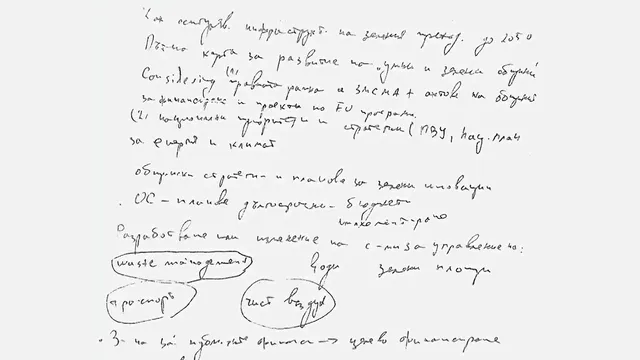 на зеления преход до 2050
Пътна карта за развитие на "умни и зелени общини
Considering (1) правната рамка и ЗМСМА + актове на общини
за финансиране и проекти по EU програми
(2) национални приоритети и стратегии (ПВУ, Нац. план
за енергия и климат
общински стратегии и планове за зелени иновации
. ОС – планове дългосрочни – бюджети
Разработване или изменение на с-ми за управление на:
waste management води зелени площи
транспорт чист въздух
. З- на за → целево финансиране